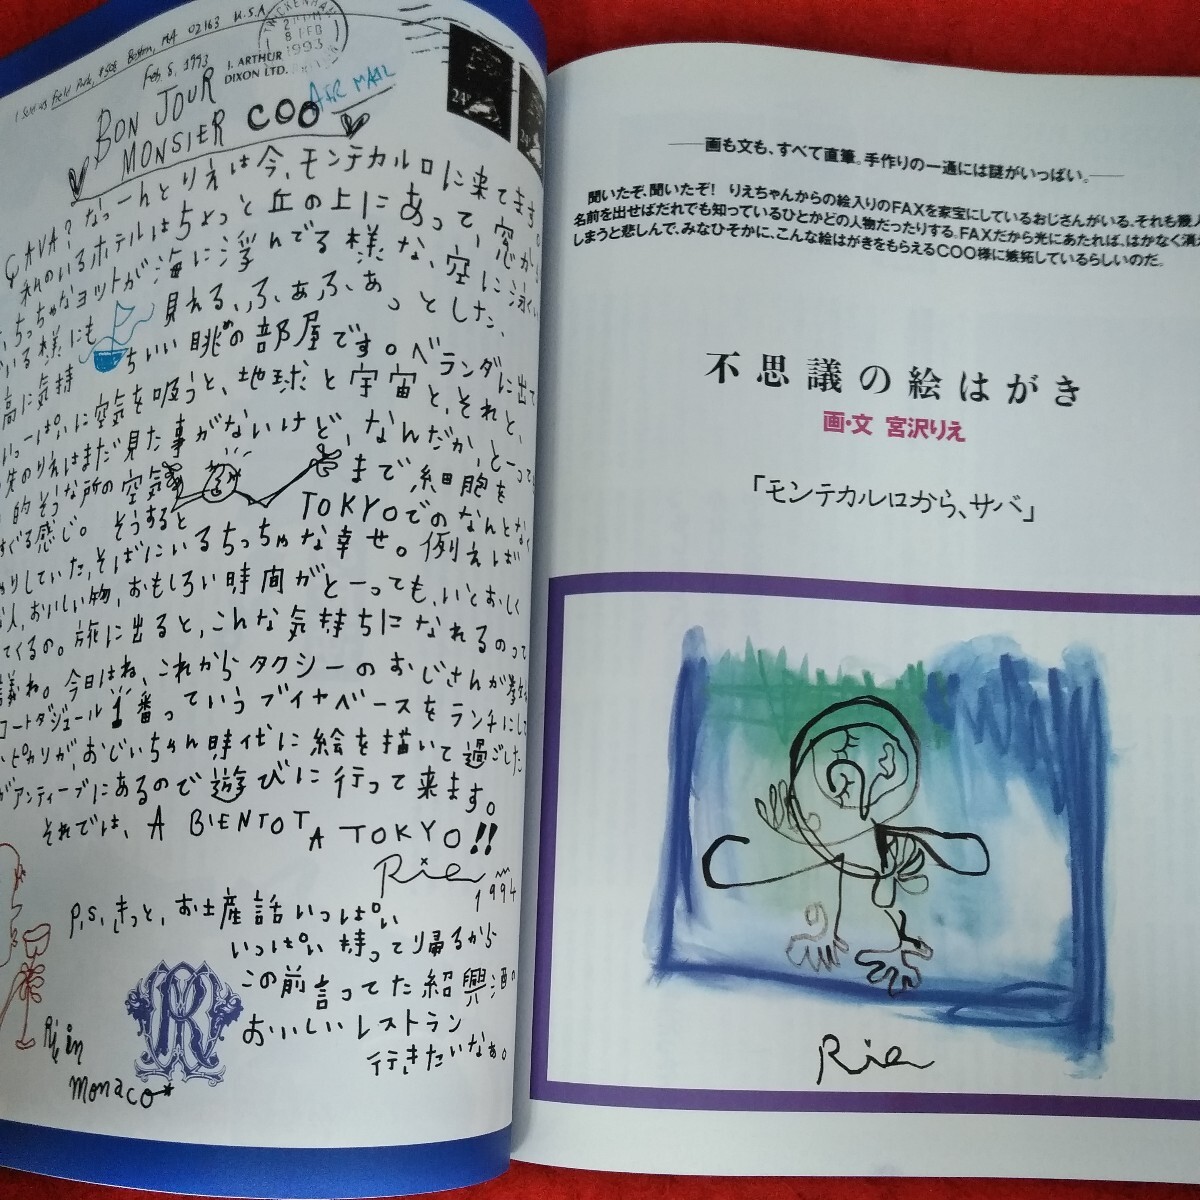 1 Sole us Field Park, #508 Boston, MA 02163 U.S.A
Feb, 8, 1993
I. ARTHUR
DIXON LTD.
8 FEB
1993
AIR MAIL
24
24
BON JOUR
MONSIER COO
ÇAVA? なーんとりえは今、モンテカルロに来てます。
私のいるホテルはちょっと丘の上にあって、窓から
ちっちゃなヨットが海に浮んでる様な、空に泳い
でいる様にも 見れる、ふ、あふ、あっとした、
高に気持 ちいい眺めの部屋です。ベランダに出て
いっーぱいに空気を吸うと、地球と宇宙と、それと、
先のりえはまだ見た事がないけど、なんだか、とーって
的そうな所の空気 まで、細胞を
すぐる感じ。そうすると TOKYOでのなんとなく
やりしていた、そばにいるちっちゃな幸せ。例えば
人、おいしい物、おもしろい時間がとーっても、いとおしく
てくるの。旅に出ると、こんな気持ちになれるのって
議ね。今日はね、これからタクシーのおじさんが
コートダジュール1番っていうブイヤベースをランチにして
ピカリが、おじいちゃん時代に絵を描いて過ごした
がアンティーブにあるので遊びに行って来ます。
それでは、A BIENTOT A TOKYO!!
Rie
1994
p.s, きっと、お土産話いっぱい
いっぱい持って帰るから
この前言ってた紹興酒の
おいしいレストラン
行きたいなぁ。
Rie in
monaco*
——画も文も、すべて直筆。手作りの一通には謎がいっぱい。——
聞いたぞ、聞いたぞ! りえちゃんからの絵入りのFAXを家宝にしているおじさんがいる。それも幾人
名前を出せばだれでも知っているひとかどの人物だったりする。FAXだから光にあたれば、はかなく消え
しまうと悲しんで、みなひそかに、こんな絵はがきをもらえるCOO様に嫉妬しているらしいのだ。
不思議の絵はがき
画・文 宮沢りえ
「モンテカルロから、サバ」
Rie